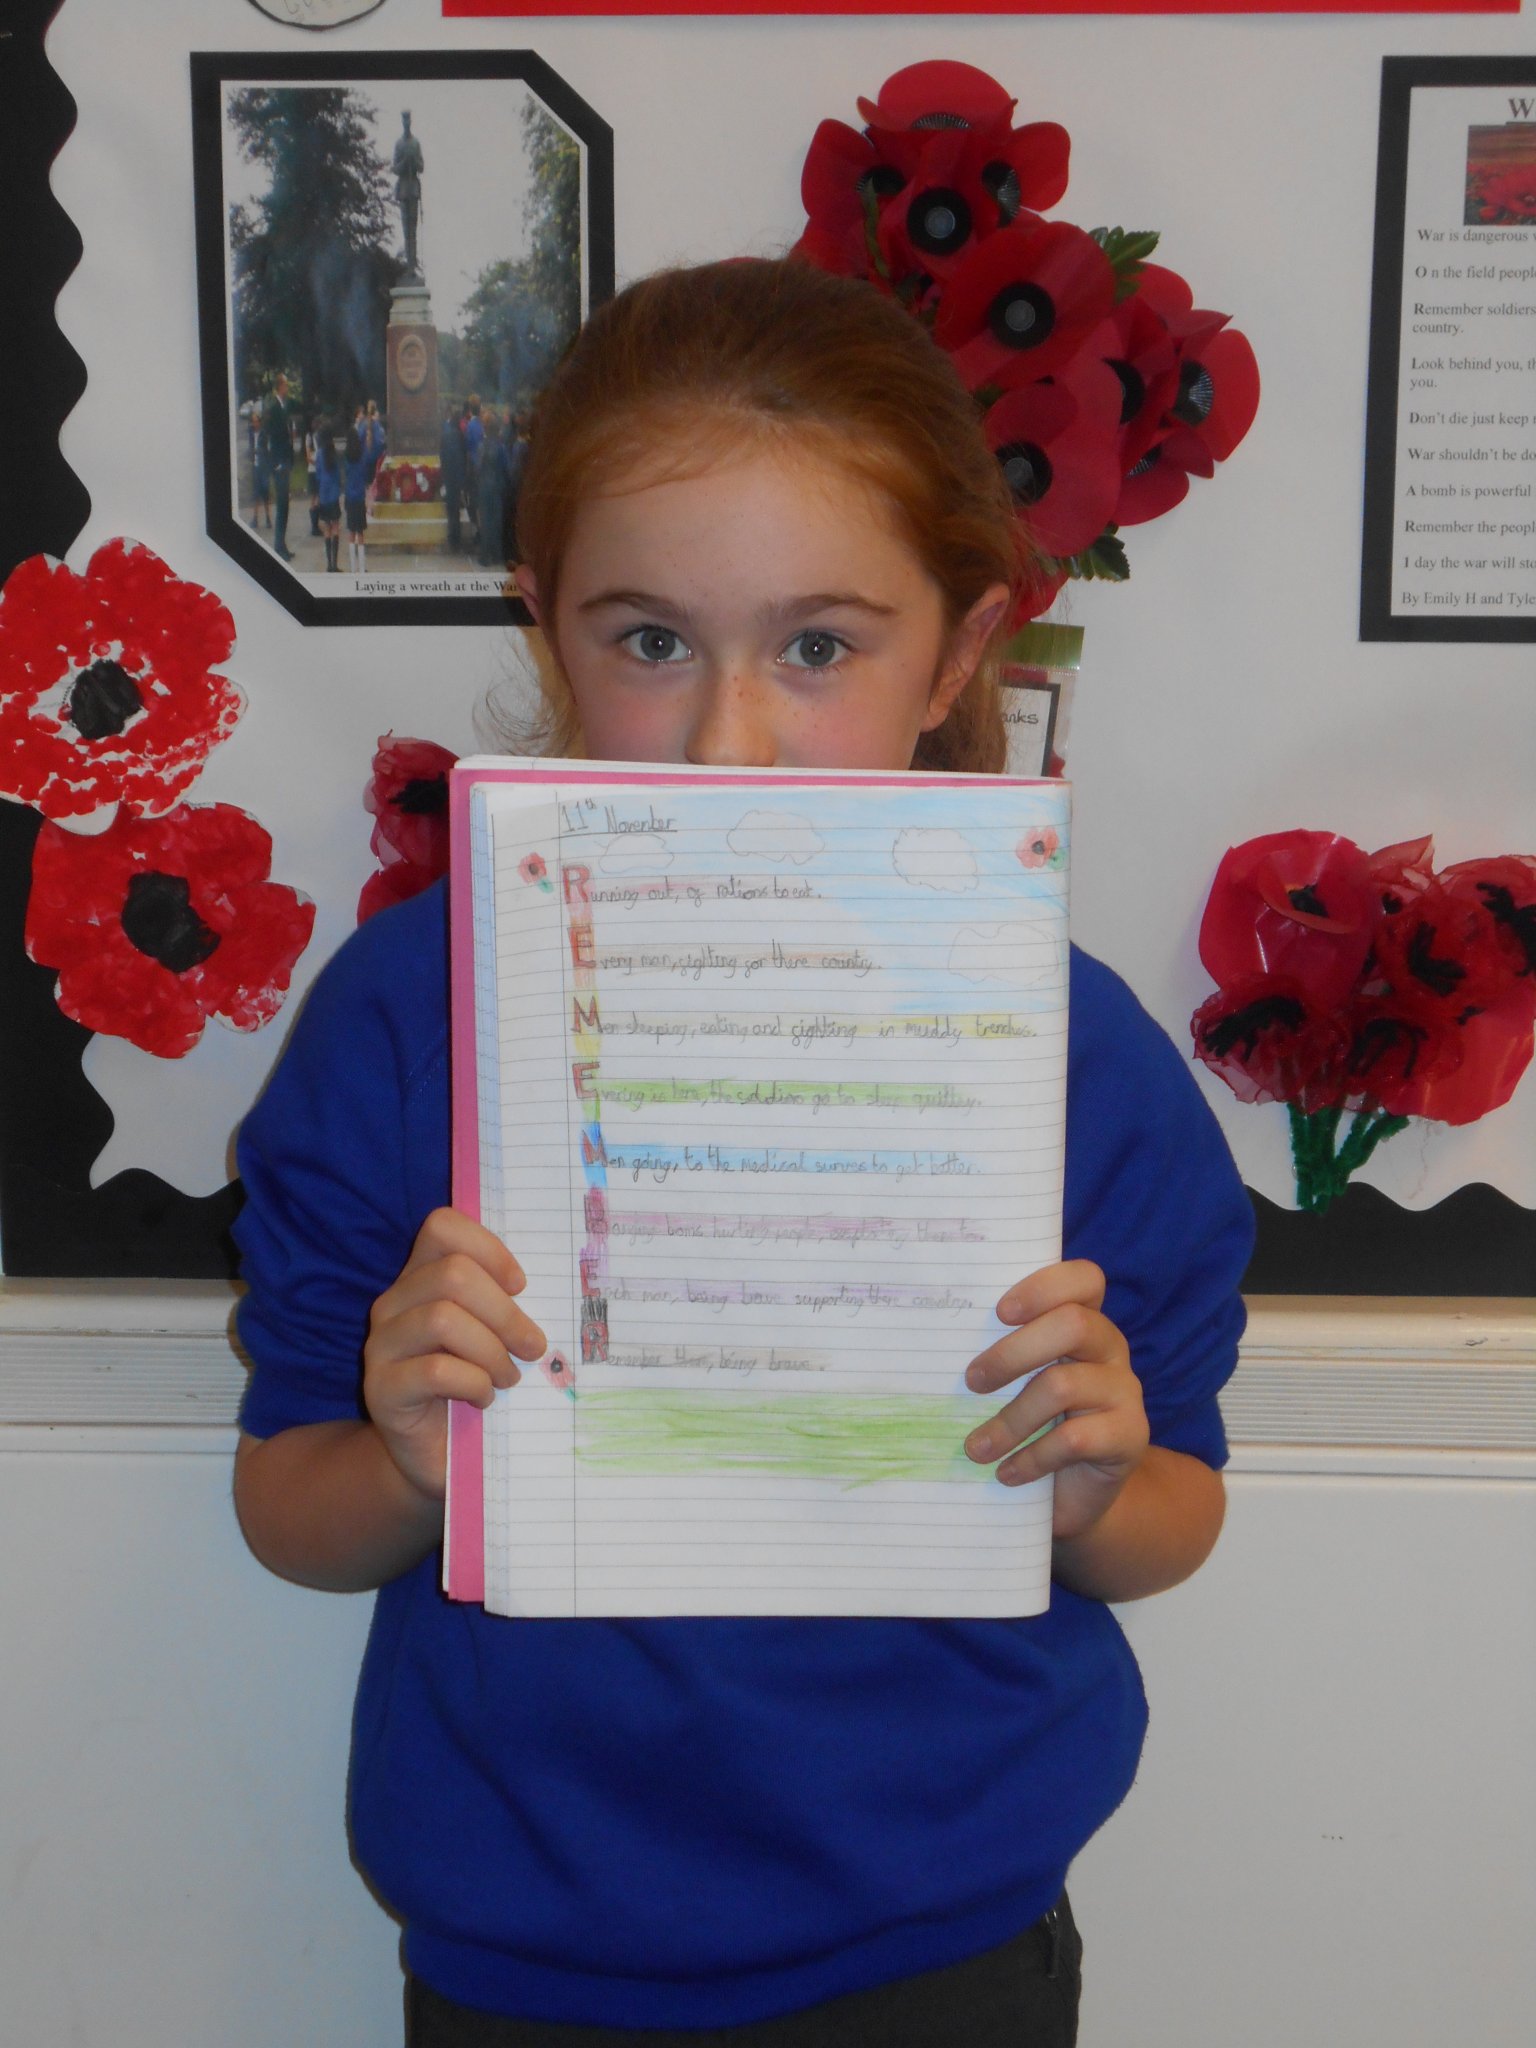 Laying a wreath at the War
W
War is dangerous
O n the field people
Remember soldiers
country.
Look behind you, th
you.
Don't die just keep
War shouldn't be do
A bomb is powerful
Remember the people
I day the war will sto
By Emily H and Tyle
anks
11th November
Running out, of rations to eat.
Every man, fighting for there country.
Men sleeping, eating and fighting in muddy trenches.
Evening is here, the soldiers go to sleep quitley.
Men going, to the medical to get better.
Banging boms hurting people,
Each man, being brave supporting there country.
Remember them, being brave.